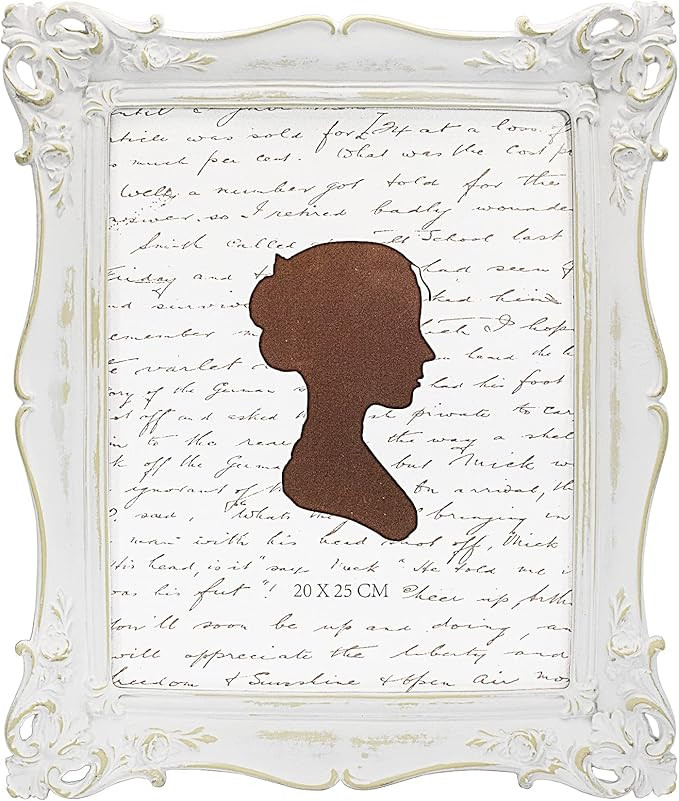 while was sold for £74 at a loss. of
much per cent. What was the Cost pr
Well, a number got told for the
answer. so I retired badly wounde
Smith called School last
Friday and had seen
and survive ked him
remember which I hop
varlet
ory of the German had his foot
off and asked private to car
in to the rear the way a shel
off the Germa but Mick w
ignorant of On arrival, the
said, "Whats the bringing in
man" with his head shot off, Mick
His head, is it" says Mick" He told me i
was his feet"! 20 X 25 CM Cheer up, brth
You'll soon be up and doing, an
will appreciate the liberty and
freedom & Sunshine & open air mos